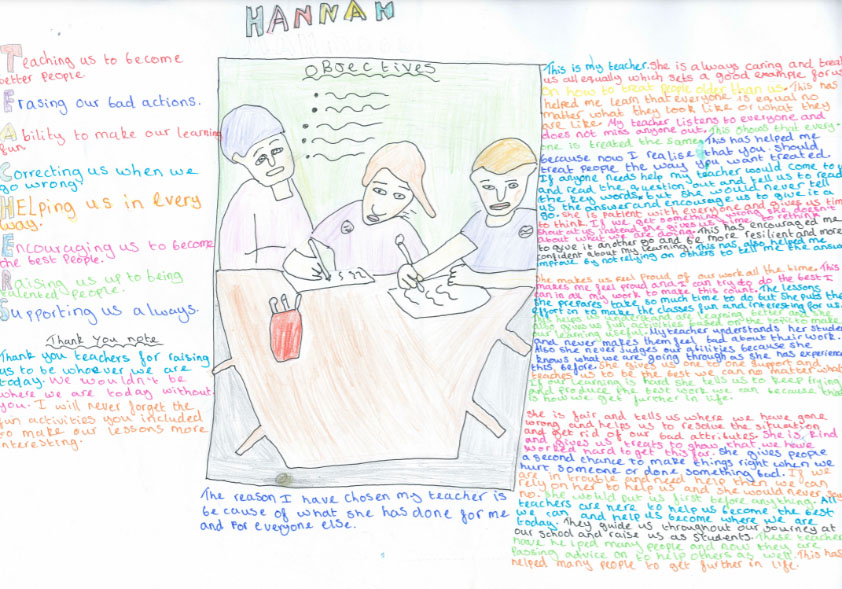 HANNAH
Teaching us to become
better people
Erasing our bad actions.
Ability to make our learning
fun
Correcting us when we
go wrong
HELping us in Every
way.
Encouraging us to become
the best People.
Raising us up to being
talented people.
Supporting us always.
Thank you note
Thank you teachers for raising
us to be whoever we are
today. We wouldn't be
where we are today without
you. I will never forget the
fun activities you included
to make our lessons more
interesting.
Objectives
The reason I have chosen my teacher is
because of what she has done for me
and for everyone else.
This is my teacher. She is always caring and treat
us all equally which sets a good example for us
on how to treat people older than us. This has
helped me learn that everyone is equal no
matter what they look like or what they
are like. My teacher listens to everyone and
does not miss anyone out. This shows that every-
one is treated the same. This has helped me
because now I realise that you should
treat people the way you want treated.
If anyone needs help my teacher would come to
and read the question out and tell us to read
the key words. but she would never tell
us the answer and encourage us to give it a
go. She is patient with everyone and gives us time
to think. If we get something wrong she doesn't
shout at us instead she gives us time to rethink
about what we are doing. This has encouraged me
to give it another go and be more resilient and more
confident about my learning. This has also helped me
improve by not relying on others to tell me the answer
She makes us feel proud of our work all the time. This
makes me feel proud and I can try to do the best I
can in all my work to make this count. The lessons
she prepares take so much time to do but she puts the
effort in to make the classes fun and interesting for us.
It helps us understand are learning better and she
also gives us fun activities based on the topic to make
our learning useful. My teacher understands her students
and never makes them feel bad about their work.
Also she never judges our abilities because she
knows what we are going through as she has experienced
this before. She gives us one to one support and
teaches us to be the best we can no matter what
If our learning is hard she tells us to keep trying
and produce the best work we can because that
is how we get further in life.
She is fair and tells us where we have gone
wrong and helps us to resolve the situation
and get rid of our bad attributes. She is kind
and gives us treats to show that we have
worked hard to get this far. She gives people
a second chance to make things right when we
hurt someone or done something bad. If we
are in trouble and need help then we can
rely on her to help us and she would never say
no. She would put us first before anything. All
teachers are here to help us become the best
we can and help us become where we are
today. They guide us throughout our journey at
our school and raise us as students. These teachers
have helped many people and now they are
passing advice on to help others as well. This has
helped many people to get further in life.